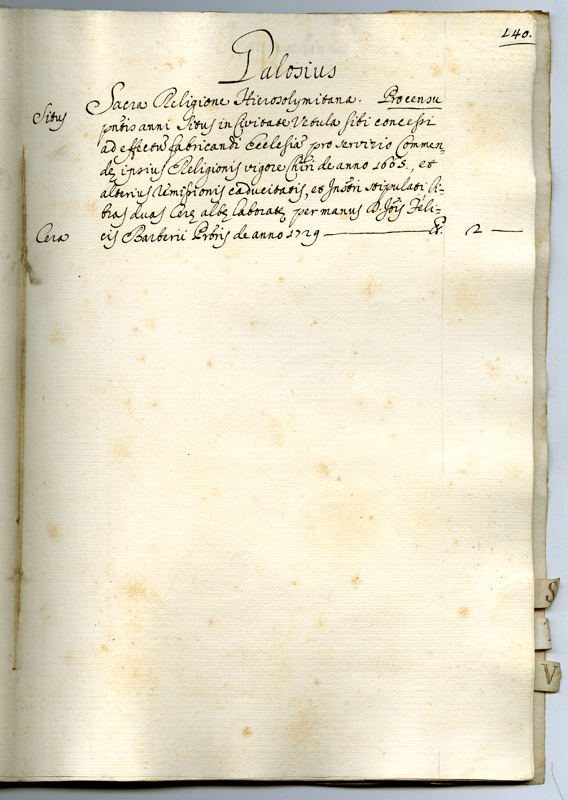 140.
Palosius
Situs Sacra Religione Hierosolymitana. Pro censu
pñtis anni Situs in Civitate Vetula sibi concessi
ad effectũ fabricandi Ecclesiã pro servizio Commen
dę ipsius Religionis vigore Chiri de anno 1605., et
alterius Remissionis caducitatis, et Instri stipulati li-
bras duas Cerę albę laboratę per manus D. Jois Feli-
Cera cis Barberii Prbris de anno 1729 — 2 —
S
I
V